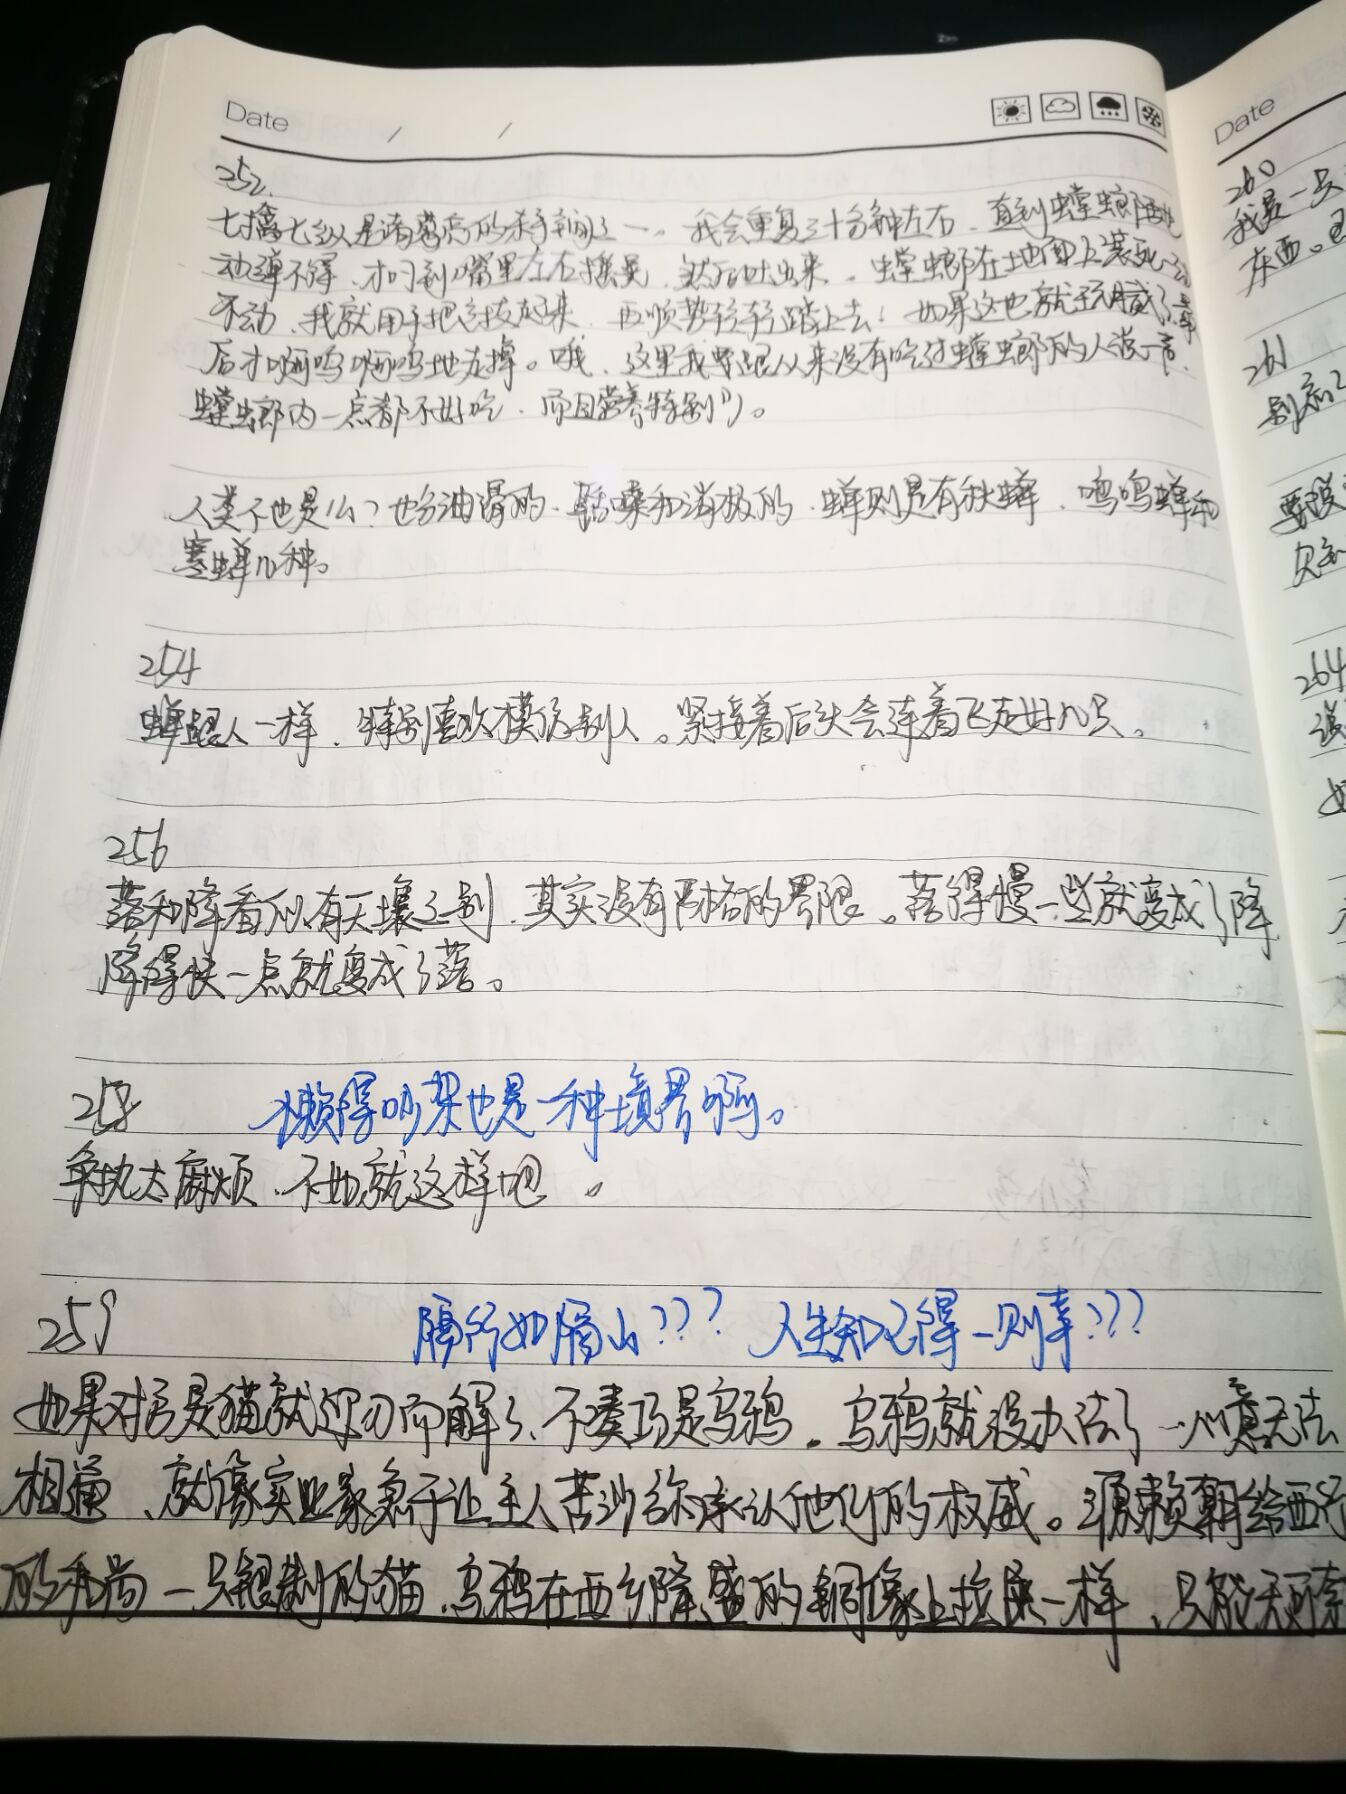 Date / /
252.
七擒七纵是诸葛亮的拿手好戏之一。我会重复三十分钟左右，直到螳螂
动弹不得，才叼到嘴里左右摇晃，然后吐出来。螳螂在地面上装死
不动，我就用手把它拨起来，再顺势轻轻踏上去！如果这也就玩腻了，最
后才啊呜啊呜地吃掉。哦，这里我要跟从来没有吃过螳螂的人说一声，
螳螂肉一点都不好吃，而且营养特别少。
人类不也是么？也分油滑的、聒噪和消极的，蝉则是有秋蝉、鸣鸣蝉和
寒蝉几种。
254
蝉跟人一样，特别喜欢模仿别人。紧接着后头会连着飞走好几只。
256
落和降看似有天壤之别，其实没有严格的界限。落得慢一些就变成了降
降得快一点就变成了落。
258 懒得吵架也是一种境界啊。
争执太麻烦，不如就这样吧。
259 隔行如隔山??? 人生知己得一则幸???
如果对方是猫就迎刃而解了，不凑巧是乌鸦。乌鸦就没办法了——心意无法
相通，就像实业家急于让主人苦沙弥承认他们的权威。源赖朝给西行
的和尚一只银制的猫，乌鸦在西乡隆盛的铜像上拉屎一样，只能无可奈
Date
260
我是一只
东西。
261
264